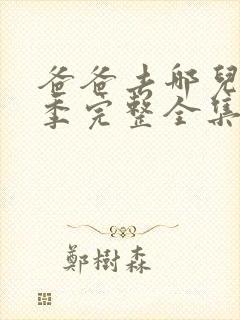 爸爸去哪兒
季完整全集
鄭樹森